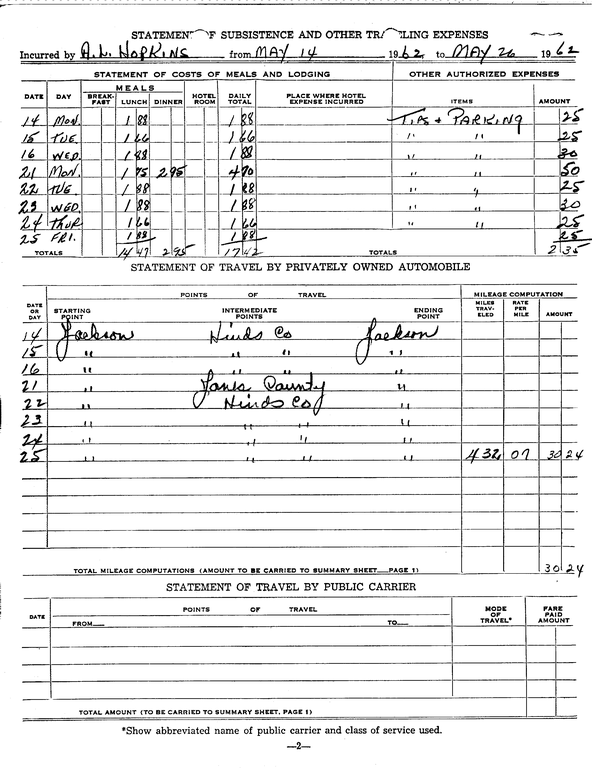 STATEMENT OF SUBSISTENCE AND OTHER TRAVELING EXPENSES
Incurred by A.L. HOPKINS from MAY 14 1962 to MAY 26 1962
STATEMENT OF COSTS OF MEALS AND LODGING OTHER AUTHORIZED EXPENSES
DATE DAY MEALS BREAK-FAST LUNCH DINNER HOTEL ROOM DAILY TOTAL PLACE WHERE HOTEL EXPENSE INCURRED ITEMS AMOUNT
14 MON. 1 88 1 88 TIPS + PARKING 25
15 TUE. 1 66 1 66 " " 25
16 WED. 1 88 1 88 " " 30
21 MON. 1 75 2 95 4 70 " " 50
22 TUE 1 88 1 88 " " 25
23 WED. 1 88 1 88 " " 30
24 THUR 1 66 1 66 " " 25
25 FRI. 1 88 1 88 25
TOTALS 14 47 2 95 17 42 TOTALS 2 35
STATEMENT OF TRAVEL BY PRIVATELY OWNED AUTOMOBILE
DATE OR DAY POINTS OF TRAVEL MILEAGE COMPUTATION
STARTING POINT INTERMEDIATE POINTS ENDING POINT MILES TRAV-ELED RATE PER MILE AMOUNT
14 Jackson Hinds Co Jackson
15 " " " "
16 " " " "
21 " County "
22 " Hinds Co "
23 " " " "
24 " " " "
25 " " " " 432 07 30 24
TOTAL MILEAGE COMPUTATIONS (AMOUNT TO BE CARRIED TO SUMMARY SHEET—PAGE 1) 30 24
STATEMENT OF TRAVEL BY PUBLIC CARRIER
DATE POINTS OF TRAVEL MODE OF TRAVEL* FARE PAID AMOUNT
FROM— TO—
TOTAL AMOUNT (TO BE CARRIED TO SUMMARY SHEET, PAGE 1)
*Show abbreviated name of public carrier and class of service used.
—2—